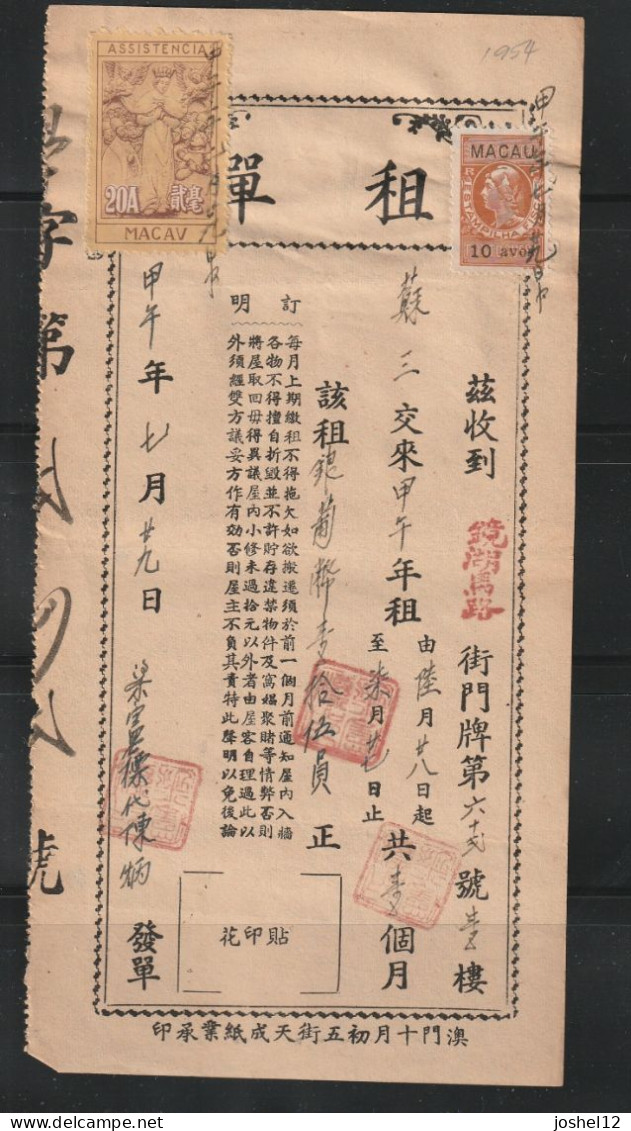 1954
ASSISTENCIA
20A 貳毫
MACAV
MACAU
10 avos
租單
茲收到 鏡湖馬路 街門牌第六十弍號壹樓
蘇三 交來甲午年租 由陸月廿八日起 至柒月廿七日止 共壹個月
該租銀葡幣壹拾伍員正
訂明
每月上期繳租不得拖欠如欲搬遷須於前一個月前通知屋內入牆
各物不得擅自折毀並不許貯存違禁物件及窩娼聚賭等情弊否則
將屋取回毋得異議屋內小修未過拾元以外者由屋客自理過此以
外須經雙方議妥方作有効否則屋主不負其責特此聲明以免後論
貼印花
甲午年七月廿九日 代陳炳 發單
字第
號
澳門十月初五街天成紙業承印
joshel12